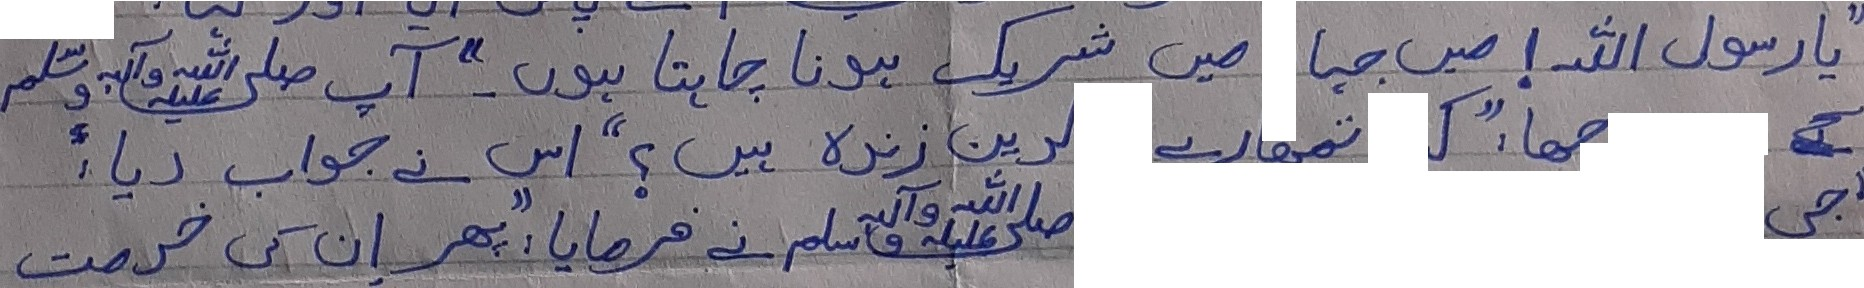 "یا رسول اللہ! میں جہا میں شریک ہونا چاہتا ہوں۔" آپ صلی اللہ علیہ وآلہ وسلم
نے تمہارے زندہ ہیں؟" اس نے جواب دیا:
"جی صلی اللہ علیہ وآلہ وسلم نے فرمایا: "پھر اِن کی خدمت